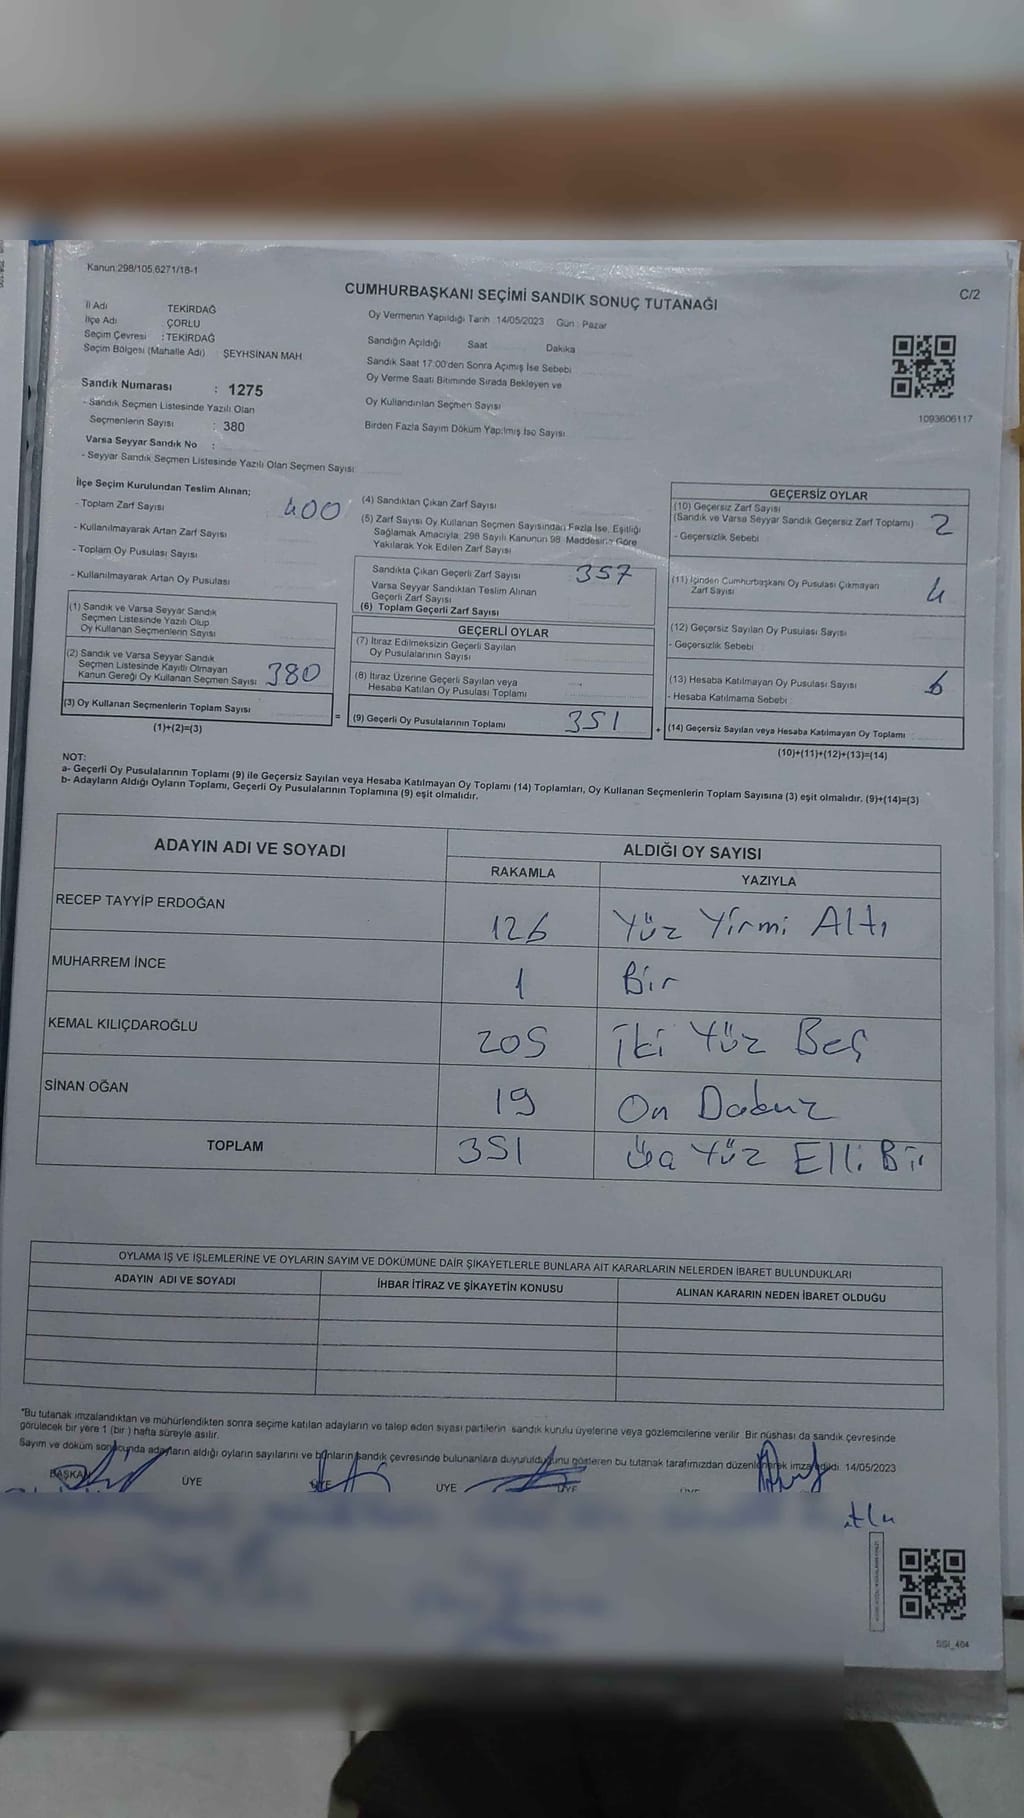 Kanun:298/105,6271/18-1
C/2
CUMHURBAŞKANI SEÇİMİ SANDIK SONUÇ TUTANAĞI
İl Adı TEKİRDAĞ
İlçe Adı : ÇORLU
Seçim Çevresi : TEKİRDAĞ
Seçim Bölgesi (Mahalle Adı) : ŞEYHSİNAN MAH.
Sandık Numarası : 1275
- Sandık Seçmen Listesinde Yazılı Olan
Seçmenlerin Sayısı : 380
Varsa Seyyar Sandık No :
- Seyyar Sandık Seçmen Listesinde Yazılı Olan Seçmen Sayısı
Oy Vermenin Yapıldığı Tarih : 14/05/2023 Gün : Pazar
Sandığın Açıldığı Saat Dakika
Sandık Saat 17:00'den Sonra Açımış İse Sebebi
Oy Verme Saati Bitiminde Sırada Bekleyen ve
Oy Kullandırılan Seçmen Sayısı
Birden Fazla Sayım Döküm Yapılmış İse Sayısı
1093606117
İlçe Seçim Kurulundan Teslim Alınan;
- Toplam Zarf Sayısı 400
- Kullanılmayarak Artan Zarf Sayısı
- Toplam Oy Pusulası Sayısı
- Kullanılmayarak Artan Oy Pusulası
(1) Sandık ve Varsa Seyyar Sandık
Seçmen Listesinde Yazılı Olup
Oy Kullanan Seçmenlerin Sayısı
(2) Sandık ve Varsa Seyyar Sandık
Seçmen Listesinde Kayıtlı Olmayan
Kanun Gereği Oy Kullanan Seçmen Sayısı 380
(3) Oy Kullanan Seçmenlerin Toplam Sayısı
(1)+(2)=(3)
(4) Sandıktan Çıkan Zarf Sayısı
(5) Zarf Sayısı Oy Kullanan Seçmen Sayısından Fazla İse, Eşitliği
Sağlamak Amacıyla, 298 Sayılı Kanunun 98. Maddesine Göre
Yakılarak Yok Edilen Zarf Sayısı
Sandıkta Çıkan Geçerli Zarf Sayısı 357
Varsa Seyyar Sandıktan Teslim Alınan
Geçerli Zarf Sayısı
(6) Toplam Geçerli Zarf Sayısı
GEÇERLİ OYLAR
(7) İtiraz Edilmeksizin Geçerli Sayılan
Oy Pusulalarının Sayısı
(8) İtiraz Üzerine Geçerli Sayılan veya
Hesaba Katılan Oy Pusulası Toplamı
= (9) Geçerli Oy Pusulalarının Toplamı 351 +
GEÇERSİZ OYLAR
(10) Geçersiz Zarf Sayısı
(Sandık ve Varsa Seyyar Sandık Geçersiz Zarf Toplamı) 2
- Geçersizlik Sebebi
(11) İçinden Cumhurbaşkanı Oy Pusulası Çıkmayan
Zarf Sayısı 4
(12) Geçersiz Sayılan Oy Pusulası Sayısı
- Geçersizlik Sebebi
(13) Hesaba Katılmayan Oy Pusulası Sayısı 6
- Hesaba Katılmama Sebebi
(14) Geçersiz Sayılan veya Hesaba Katılmayan Oy Toplamı
(10)+(11)+(12)+(13)=(14)
NOT:
a- Geçerli Oy Pusulalarının Toplamı (9) ile Geçersiz Sayılan veya Hesaba Katılmayan Oy Toplamı (14) Toplamları, Oy Kullanan Seçmenlerin Toplam Sayısına (3) eşit olmalıdır. (9)+(14)=(3)
b- Adayların Aldığı Oyların Toplamı, Geçerli Oy Pusulalarının Toplamına (9) eşit olmalıdır.
ADAYIN ADI VE SOYADI ALDIĞI OY SAYISI
RAKAMLA YAZIYLA
RECEP TAYYİP ERDOĞAN 126 Yüz Yirmi Altı
MUHARREM İNCE 1 Bir
KEMAL KILIÇDAROĞLU 205 İki Yüz Beş
SİNAN OĞAN 19 On Dokuz
TOPLAM 351 Üç Yüz Elli Bir
OYLAMA İŞ VE İŞLEMLERİNE VE OYLARIN SAYIM VE DÖKÜMÜNE DAİR ŞİKAYETLERLE BUNLARA AİT KARARLARIN NELERDEN İBARET BULUNDUKLARI
ADAYIN ADI VE SOYADI İHBAR İTİRAZ VE ŞİKAYETİN KONUSU ALINAN KARARIN NEDEN İBARET OLDUĞU
*Bu tutanak imzalandıktan ve mühürlendikten sonra seçime katılan adayların ve talep eden siyasi partilerin sandık kurulu üyelerine veya gözlemcilerine verilir. Bir nüshası da sandık çevresinde
görülecek bir yere 1 (bir) hafta süreyle asılır.
Sayım ve döküm sonucunda adayların aldığı oyların sayılarını ve bunların sandık çevresinde bulunanlara duyurulduğunu gösteren bu tutanak tarafımızdan düzenlenerek imza edildi. 14/05/2023
BAŞKAN ÜYE ÜYE ÜYE ÜYE
SSI_404